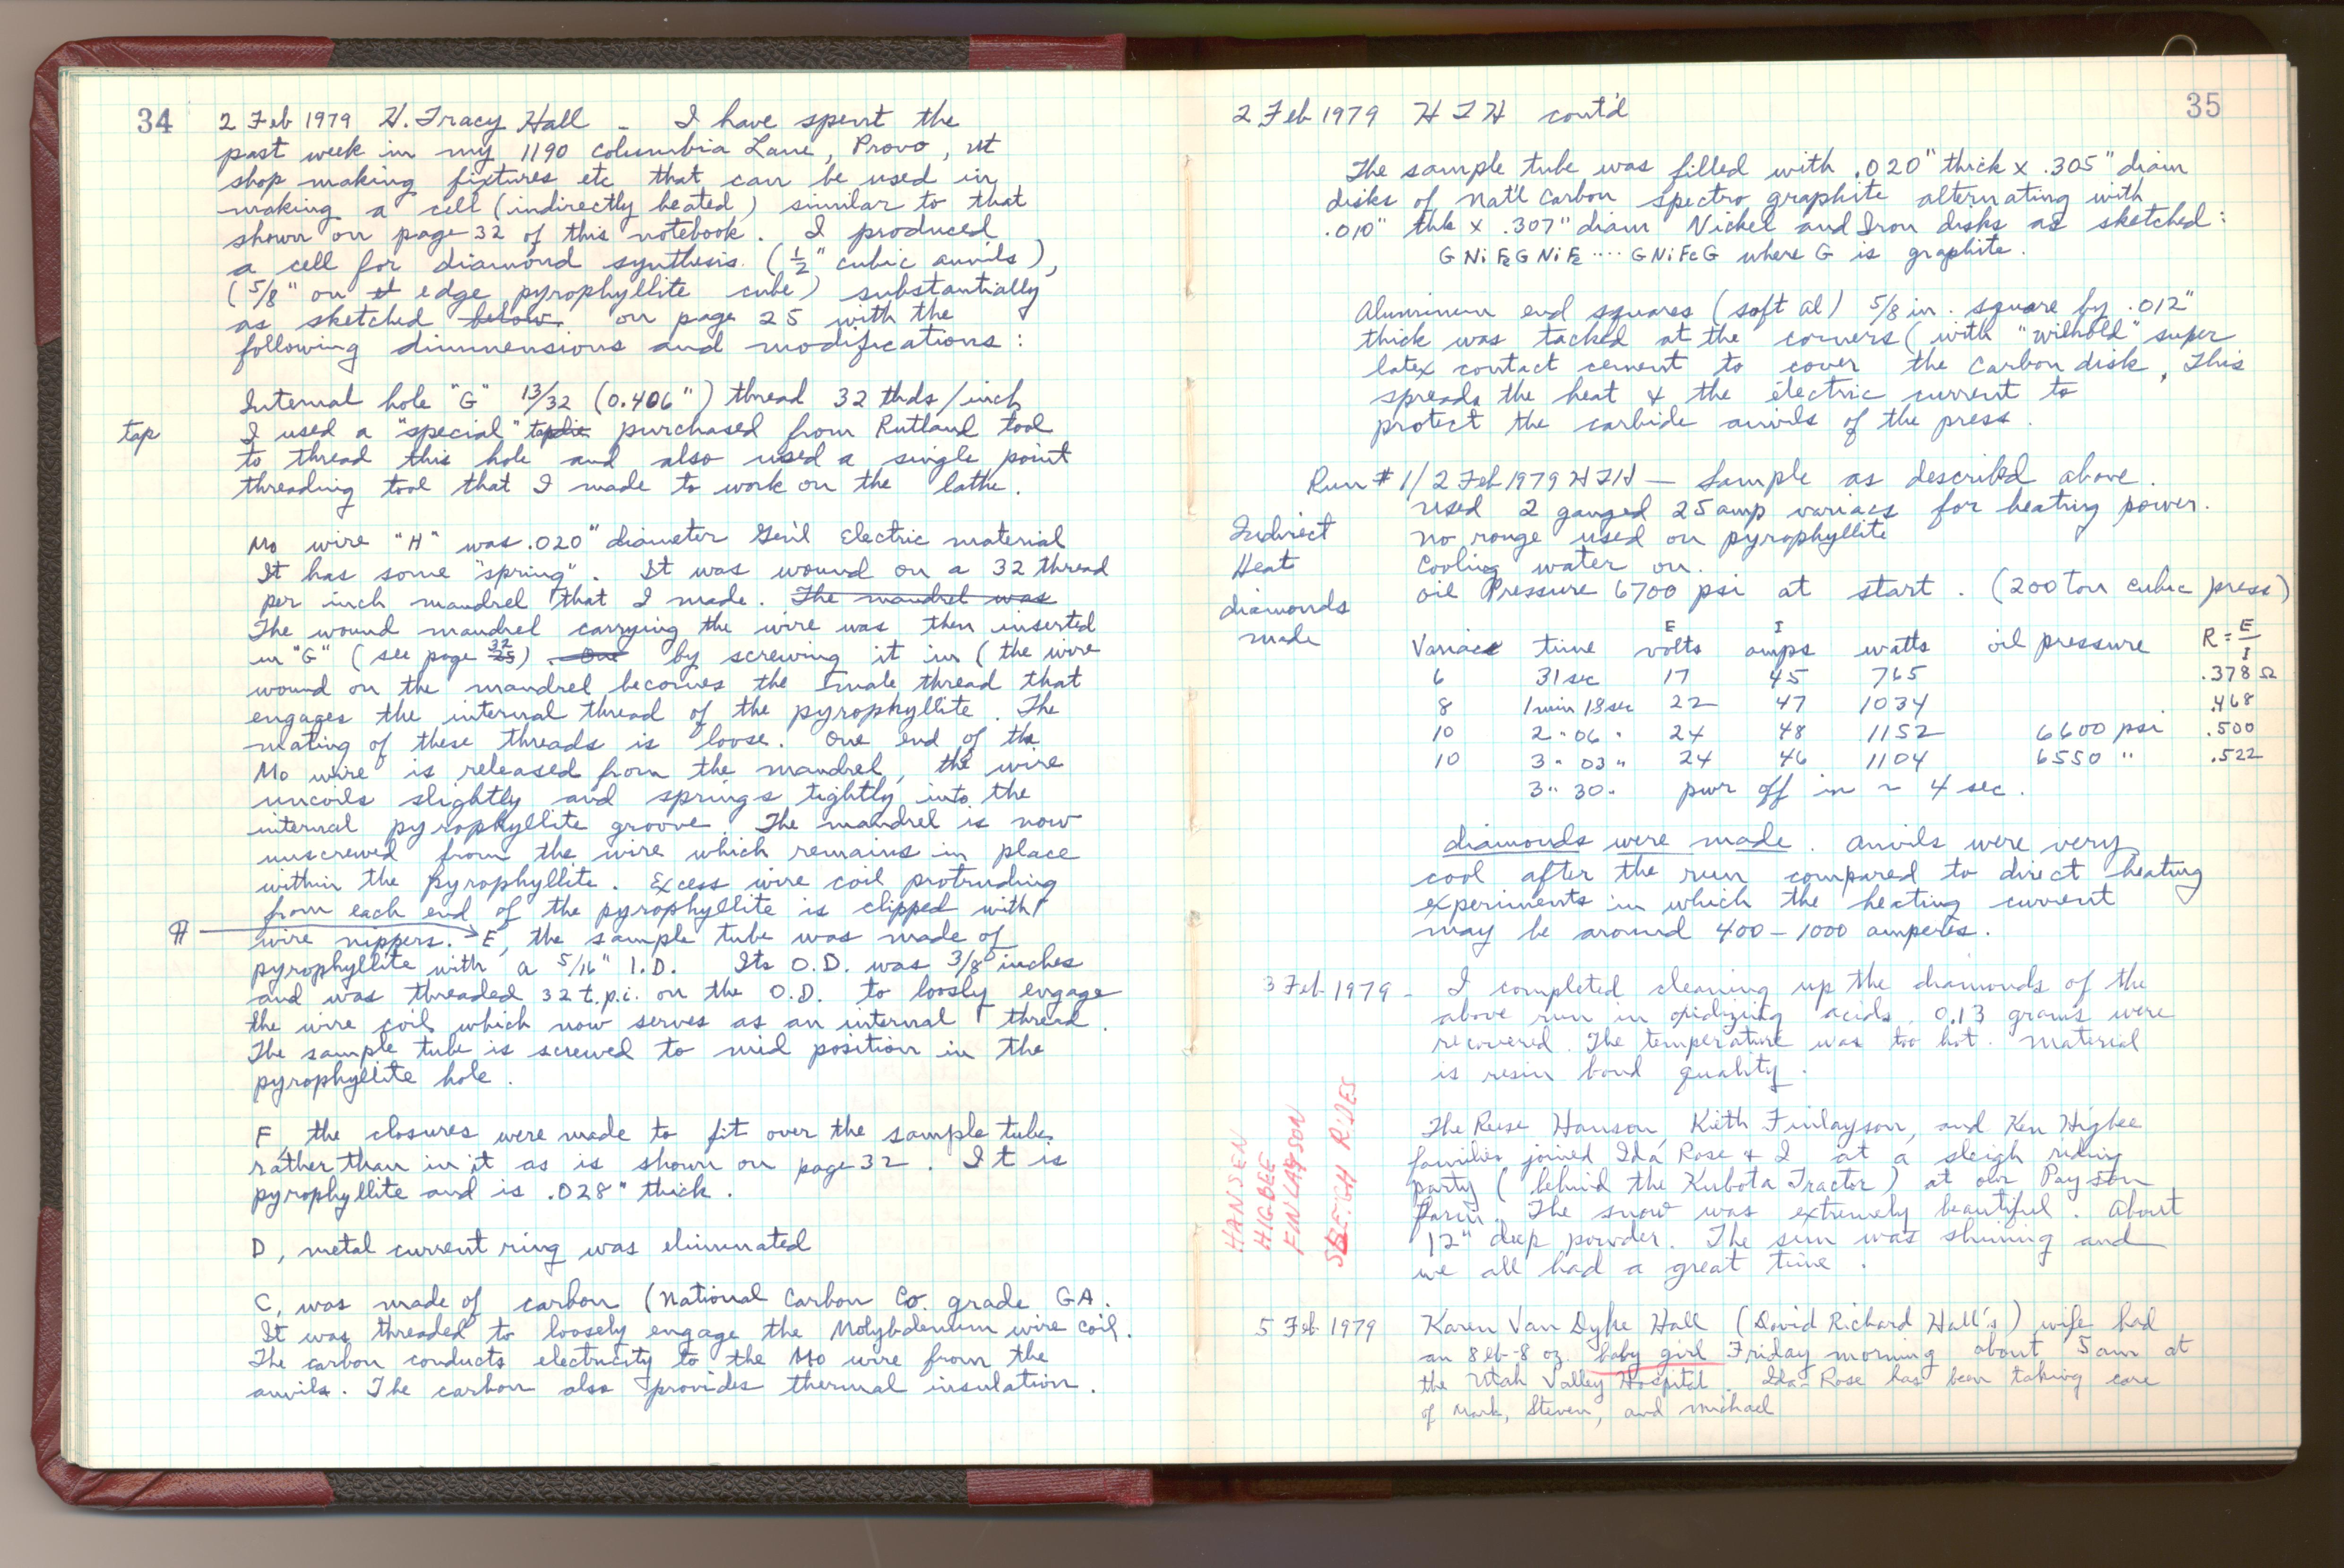 34
2 Feb 1979 H. Tracy Hall – I have spent the
past week in my 1190 Columbia Lane, Provo, Ut
shop making fixtures etc that can be used in
making a cell (indirectly heated) similar to that
shown on page 32 of this notebook. I produced
a cell for diamond synthesis (1/2" cubic anvils),
(5/8" on edge pyrophyllite cube) substantially
as sketched below. on page 25 with the
following dimmensions and modifications:
Internal hole "G" 13/32 (0.406") thread 32 thds/inch
tap
I used a "special" purchased from Rutland tool
to thread this hole and also used a single point
threading tool that I made to work on the lathe.
Mo wire "H" was .020" diameter Gen'l Electric material
It has some "spring". It was wound on a 32 thread
per inch mandrel that I made. The mandrel was
The wound mandrel carrying the wire was then inserted
in "G" (see page 32 25). One by screwing it in (the wire
wound on the mandrel becomes the male thread that
engages the internal thread of the pyrophyllite. The
mating of these threads is loose. One end of the
Mo wire is released from the mandrel, the wire
uncoils slightly and springs tightly into the
internal pyrophyllite groove. The mandrel is now
unscrewed from the wire which remains in place
within the pyrophyllite. Excess wire coil protruding
from each end of the pyrophyllite is clipped with
wire nippers. E, the sample tube was made of
pyrophyllite with a 5/16" I.D. Its O.D. was 3/8 inches
and was threaded 32 t.p.i. on the O.D. to loosly engage
the wire coil which now serves as an internal thread.
The sample tube is screwed to mid position in the
pyrophyllite hole.
F, the closures were made to fit over the sample tube
rather than in it as is shown on page 32. It is
pyrophyllite and is .028" thick.
D, metal current ring was eliminated
C, was made of carbon (National Carbon Co. grade GA.
It was threaded to loosely engage the Molybdenum wire coil.
The carbon conducts electricity to the Mo wire from the
anvils. The carbon also provides thermal insulation.
35
2 Feb 1979 HTH cont'd
The sample tube was filled with .020" thick x .305" diam
disks of Nat'l Carbon spectro graphite alternating with
.010" thk x .307" diam Nickel and Iron disks as sketched:
G Ni Fe G Ni Fe .... G Ni Fe G where G is graphite.
Aluminum end squares (soft Al) 5/8 in. square by .012"
thick was tacked at the corners (with "wilhold" super
latex contact cement to cover the carbon disk. This
spreads the heat & the electric current to
protect the carbide anvils of the press.
Run #1/ 2 Feb 1979 HTH – Sample as described above.
used 2 ganged 25 amp variacs for heating power.
Indirect
Heat
diamonds
made
no rouge used on pyrophyllite
Cooling water on.
oil Pressure 6700 psi at start. (200 ton cubic press)
Variacs time E volts I amps watts oil pressure R = E/I
6 31 sec 17 45 765 .378 Ω
8 1 min 18 sec 22 47 1034 .468
10 2 " 06 " 24 48 1152 6600 psi .500
10 3 " 03 " 24 46 1104 6550 " .522
3 " 30 " pwr off in ~ 4 sec.
diamonds were made. anvils were very
cool after the run compared to direct heating
experiments in which the heating current
may be around 400–1000 amperes.
3 Feb 1979 – I completed cleaning up the diamonds of the
above run in oxidizing acids. 0.13 grams were
recovered. The temperature was too hot. Material
is resin bond quality.
HANSEN
HIGBEE
FINLAYSON
SLEIGH RIDES
The Reese Hanson, Keith Finlayson, and Ken Higbee
families joined Ida Rose & I at a sleigh riding
party (behind the Kubota Tractor) at our Payson
farm. The snow was extremely beautiful. About
12" deep powder. The sun was shining and
we all had a great time.
5 Feb 1979 Karen Van Dyke Hall (David Richard Hall's) wife had
an 8 lb-8 oz baby girl Friday morning about 5 am at
the Utah Valley Hospital. Ida-Rose has been taking care
of Mark, Steven, and Michael